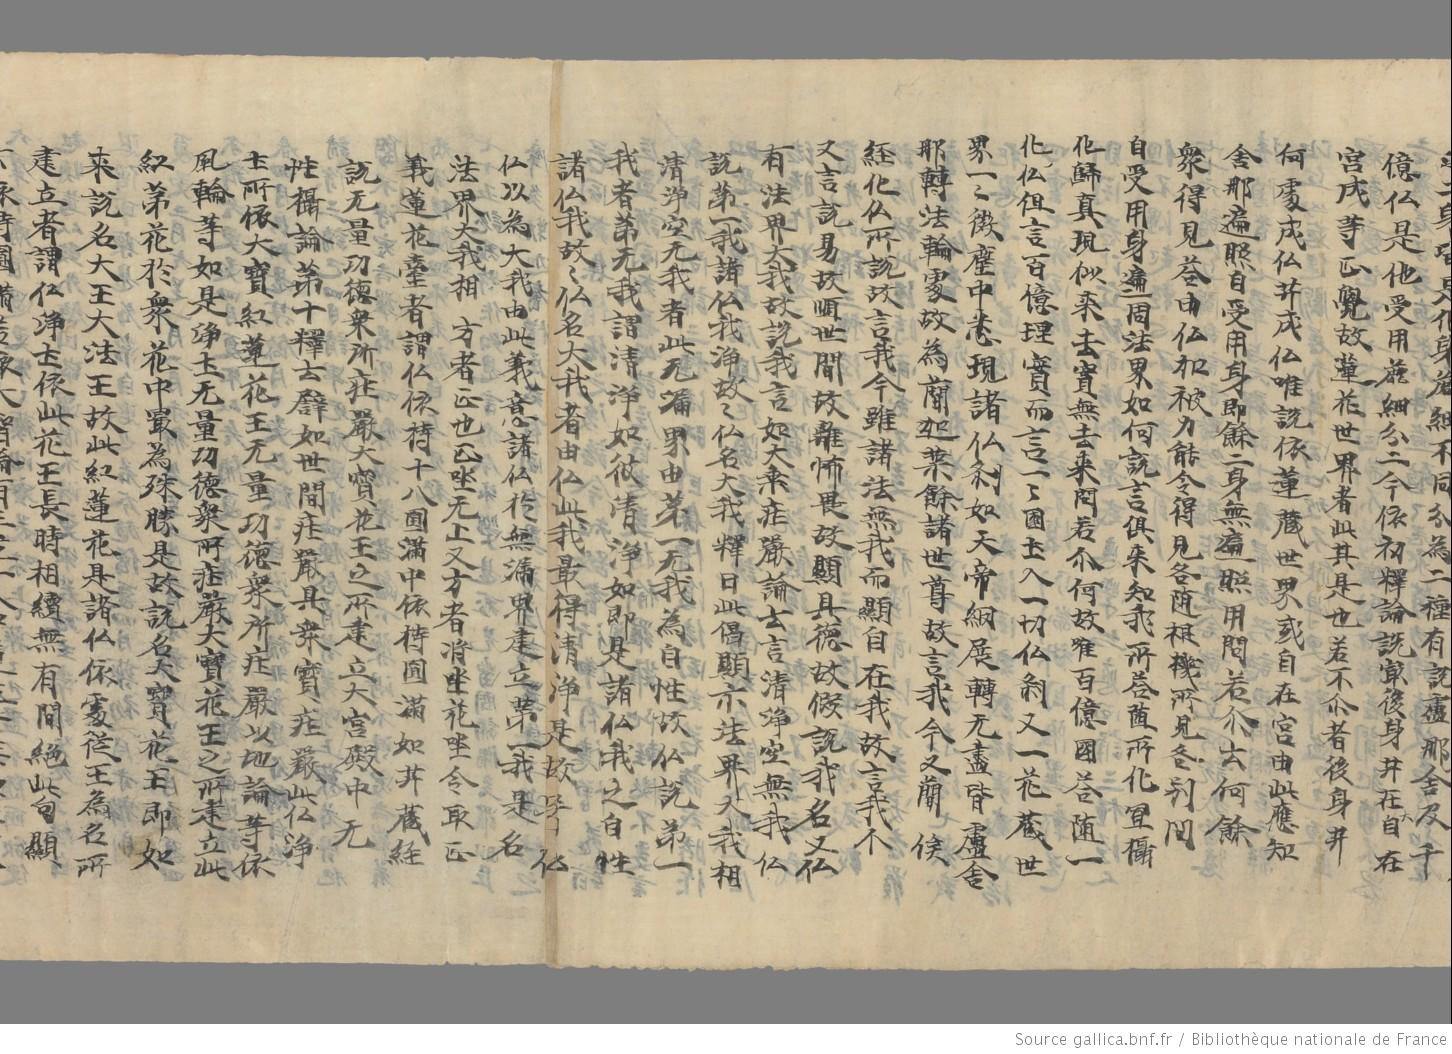 億仏是他受用麁細分二今依初釋論說寂後身井在自在
宮成等正覺故蓮花世界者此其是也若不尒者後身井
何處成仏井成仏唯說依蓮藏世界或自在宮由此應知
舍那遍照自受用身即餘二身無遍照用問若尒去何餘
衆得見荅由仏加被力能令得見各隨根機所見各別問
自受用身遍周法界如何說言俱来知我所荅葍所化冝攝
化歸真現似来去實無去来問若尒何故唯百億國荅隨一
化仏但言百億理實而言一〻國土入一切仏刹又一花藏世
界一〻微塵中悉現諸仏刹如天帝網展轉无盡皆盧舍
耶轉法輪處故為蘭迦葉餘諸世尊故言我今又蘭侯
經化仏所說故言我今雖諸法無我而顯自在我故言我不
又言說易故順世間故離怖畏故顯具德故假說我名又仏
有法界大我故說我言如大乘莊嚴論去言清淨空無我仏
說第一我諸仏我淨故〻仏名大我釋曰此偈顯示法界大我相
清淨空无我者此无漏界由第一无我為自性故仏說第一
我者第无我謂清淨如彼清淨如即是諸仏我之自性
諸仏我故〻仏名大我者由仏此我最得清淨是故 仏
仏以為大我由此義意諸仏於無漏界建立第一我是名
法界大我相 方者正也正坐无上又方者消坐花坐令取正
義蓮花臺者謂仏依待十八圓滿中依待圓滿如井藏經
說无量功德衆所莊嚴大寶花王之所建立大宮殿中无
性攝論第十釋去辟如世間莊嚴具衆寶莊嚴此仏淨
土所依大寶紅蓮花王无量功德衆所莊嚴以地論等依
風輪等如是淨土无量功德衆所莊嚴大寶花王之所建立此
紅第花於衆花中最為殊勝是故說名大寶花王即如
来說名大王大法王故此紅蓮花是諸仏依處從王為名所
建立者謂仏淨土依此花王長時相續無有間絕此句顯
Source gallica.bnf.fr / Bibliothèque nationale de France